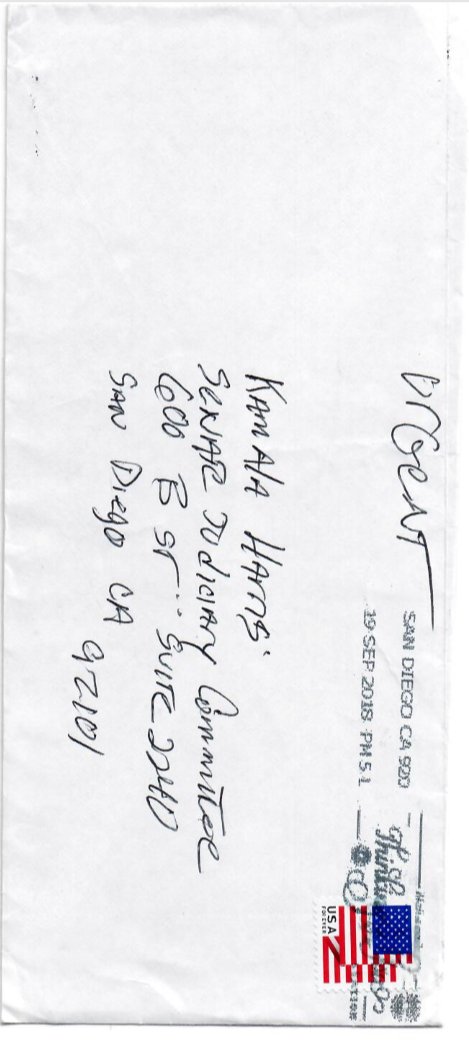 Urgent
SAN DIEGO CA 920
19 SEP 2018 PM 5 L
USA
FOREVER
Kamala Harris
Senate Judiciary Committee
600 B St. Suite 2240
San Diego CA 92101